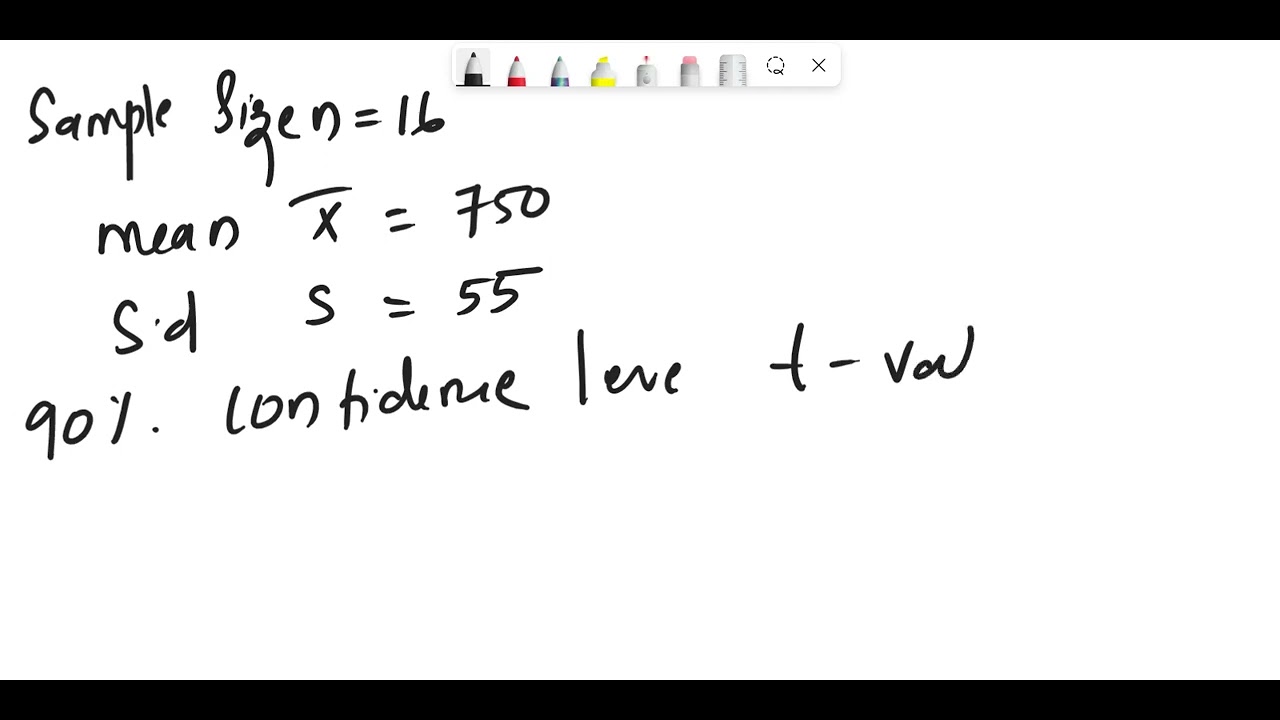 Sample Size n = 16
mean x̄ = 750
S.d S = 55
90%. confidence leve t - val